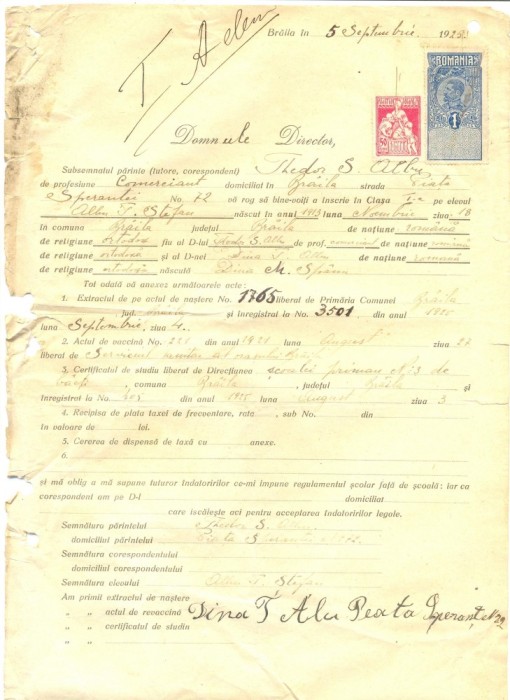 Brăila în 5 Septembrie 1925
I
ROMANIA
1
Domnule Director,
Subsemnatul părinte (tutore, corespondent) Thedor S. Albu
de profesiune Comerciant domiciliat în Brăila strada Piata
Sperantei No. 72 vă rog să bine-voiți a înscrie în Clasa I-a pe elevul
Albu T. Ștefan născut în anul 1913 luna Noembrie ziua 18
în comuna Brăila județul Brăila de națiune română
de religiune ortodoxă fiu al D-lui Thedor S. Albu de prof. comerciant de națiune română
de religiune ortodoxă și al D-nei Dina T. Albu de națiune română
de religiune ortodoxă născută Dina M.
Tot odată că anexez următoarele acte:
1. Extractul de pe actul de naștere No. 1765 liberat de Primăria Comunei Brăila
jud. Brăila și înregistrat la No. 3501 din anul 1925
luna Septembrie ziua 4.
2. Actul de vaccină No. 221 din anul 1925 luna August ziua 27
liberat de Serviciul sanitar al orașului Brăila
3. Certificatul de studiu liberat de Direcțiunea școalei primare No. 3 de
băeți, comuna Brăila, județul Brăila și
înregistrat la No. din anul 1925 luna August ziua 3
4. Recipisa de plata taxei de frecventare, rata , sub No. din
în valoare de lei.
5. Cererea de dispensă de taxă cu anexe.
6.
și mă oblig a mă supune tuturor îndatoririlor ce-mi impune regulamentul școlar față de școală: iar ca
corespondent am pe D-l domiciliat
care iscălește aci pentru acceptarea îndatoririlor legale.
Semnătura părintelui Thedor S. Albu
domiciliul părintelui Piata Sperantei No. 72.
Semnătura corespondentului
domiciliul corespondentului
Semnătura elevului Albu T. Ștefan
Am primit extractul de naștere
„ „ actul de revaccină Dina T Alu Peata Speranței No 72
„ „ certificatul de studiu
„ „